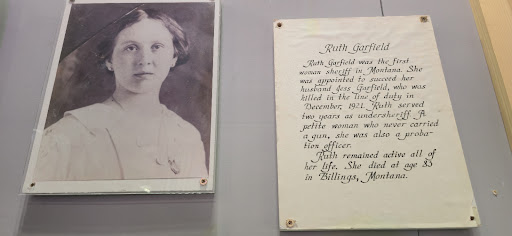 Ruth Garfield
Ruth Garfield was the first
woman sheriff in Montana. She
was appointed to succeed her
husband Jess Garfield, who was
killed in the line of duty in
December, 1921. Ruth served
two years as undersheriff. A
petite woman who never carried
a gun, she was also a proba-
tion officer.
Ruth remained active all of
her life. She died at age 83
in Billings, Montana.